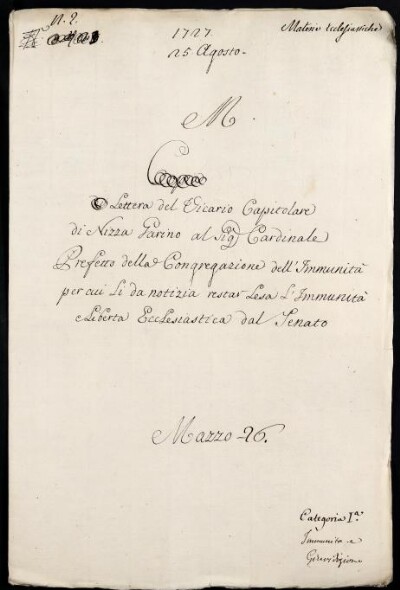 N. 2.
Materie Ecclesiastiche
1727.
25 Agosto.
M
Lettera del Vicario Capitolare
di Nizza Parino al Sig Cardinale
Prefetto della Congregazione dell'Immunità
per cui Li da notizia restar Lesa L'Immunità
e Liberta Ecclesiastica dal Senato
Marzo 26.
Categoria I.a
Immunita e
Giurisdizione